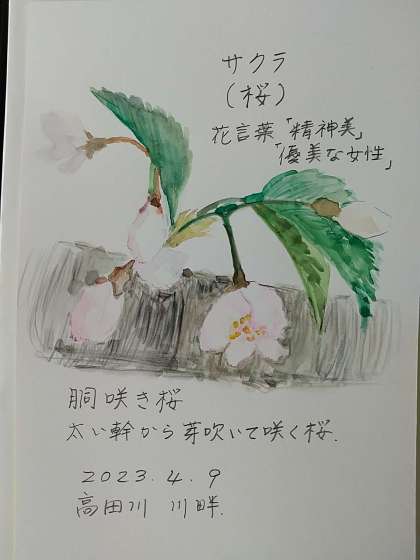 サクラ
(桜)
花言葉「精神美」
「優美な女性」
胴咲き桜
太い幹から芽吹いて咲く桜.
2023.4.9
高田川 川畔.